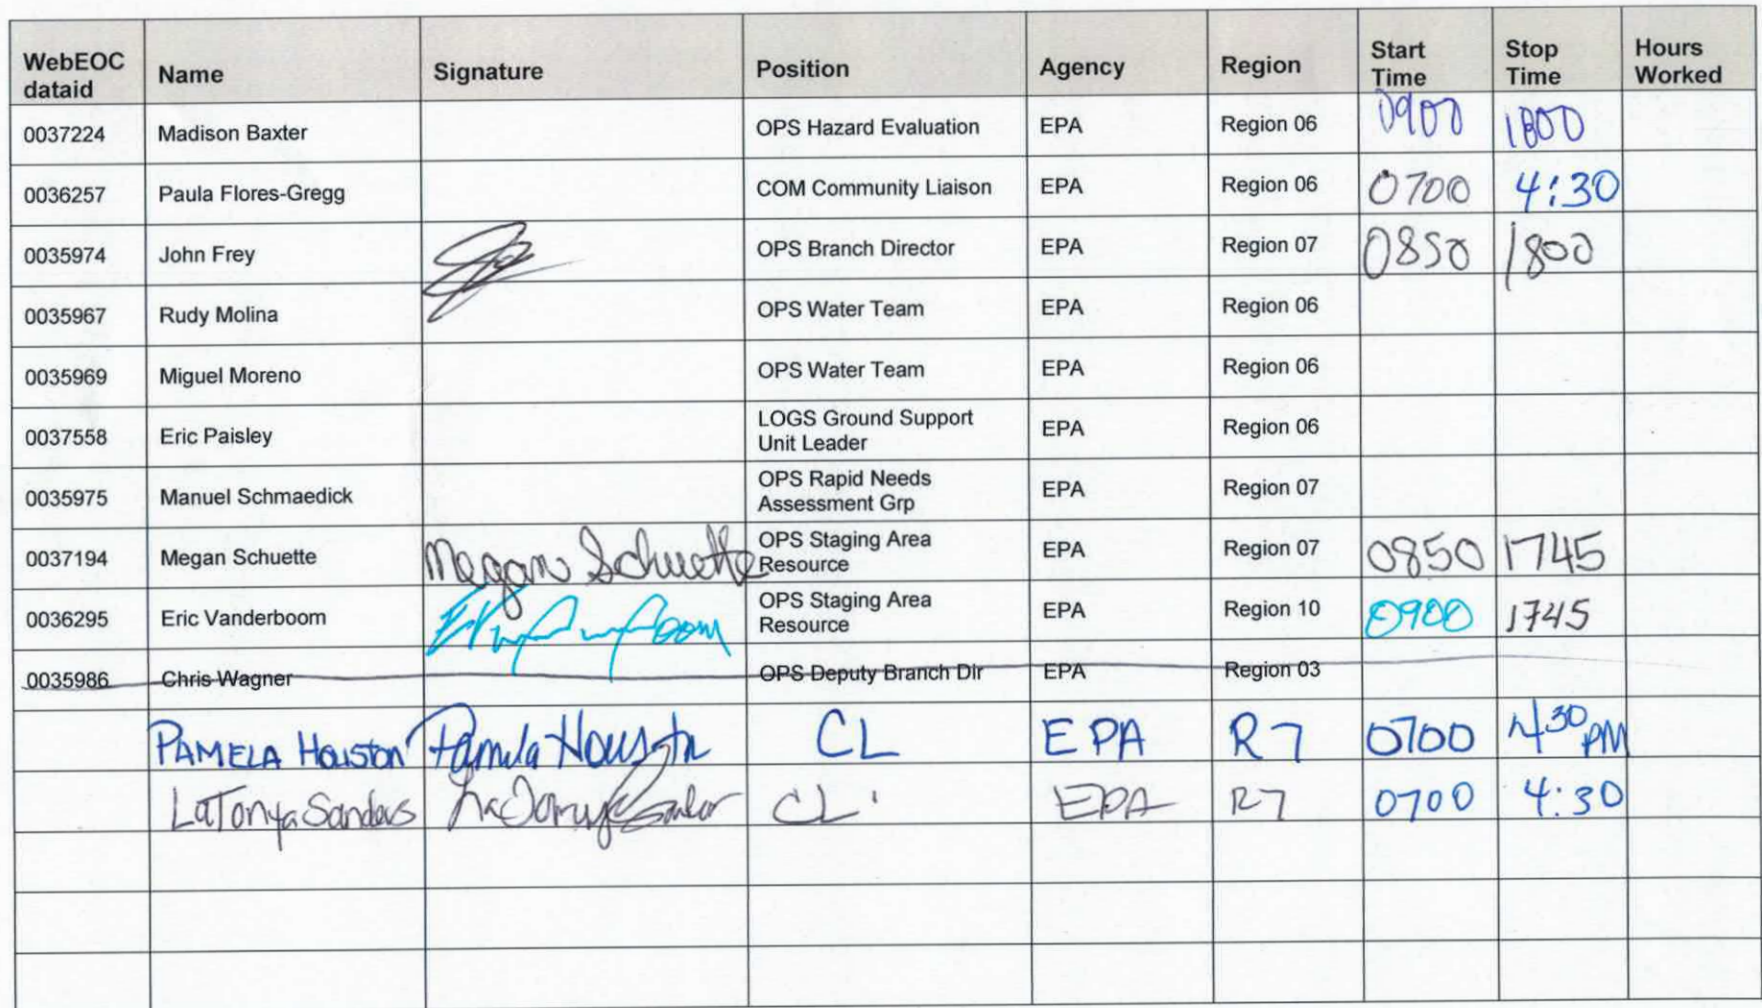 WebEOC dataid Name Signature Position Agency Region Start Time Stop Time Hours Worked
0037224 Madison Baxter OPS Hazard Evaluation EPA Region 06 0900 1800
0036257 Paula Flores-Gregg COM Community Liaison EPA Region 06 0700 4:30
0035974 John Frey OPS Branch Director EPA Region 07 0850 1800
0035967 Rudy Molina OPS Water Team EPA Region 06
0035969 Miguel Moreno OPS Water Team EPA Region 06
0037558 Eric Paisley LOGS Ground Support Unit Leader EPA Region 06
0035975 Manuel Schmaedick OPS Rapid Needs Assessment Grp EPA Region 07
0037194 Megan Schuette Megan Schuette OPS Staging Area Resource EPA Region 07 0850 1745
0036295 Eric Vanderboom OPS Staging Area Resource EPA Region 10 0900 1745
0035986 Chris Wagner OPS Deputy Branch Dir EPA Region 03
PAMELA HOUSTON Pamela Houston CL EPA R7 0700 430 PM
LaTonya Sanders LaTonya Sanders CL EPA R7 0700 4:30